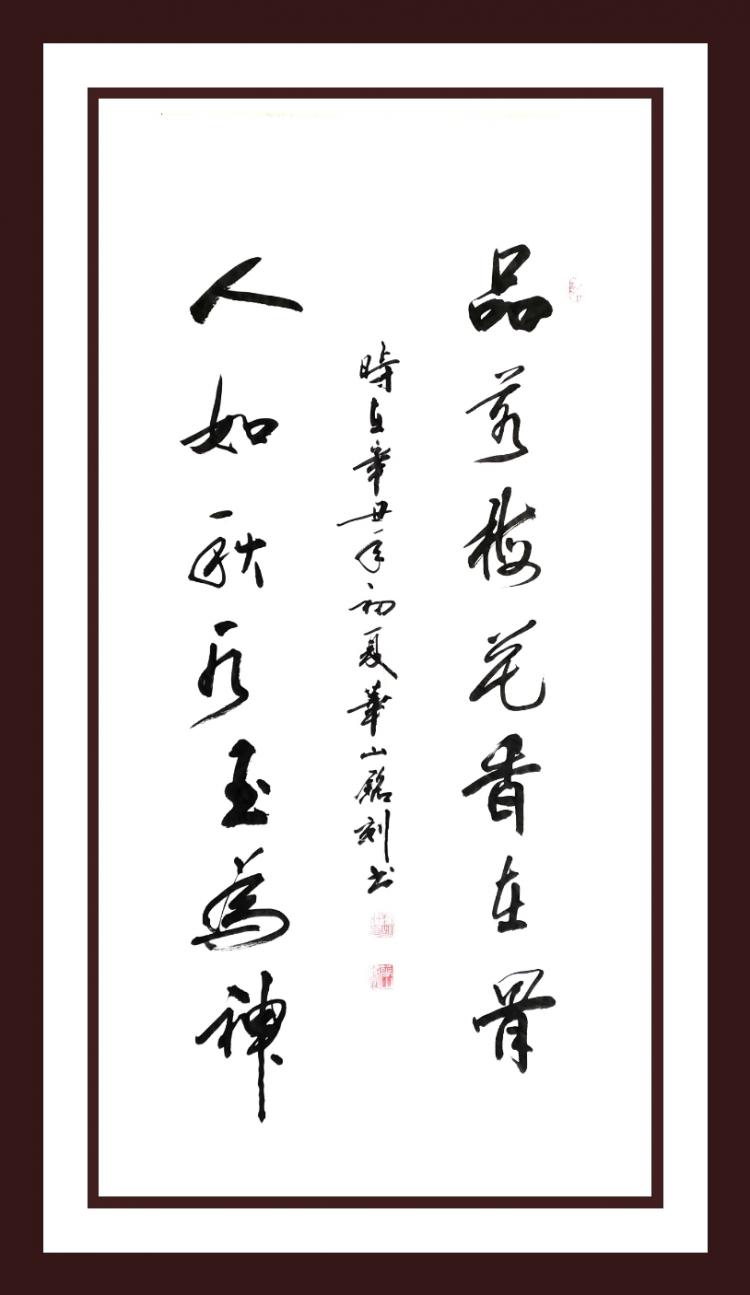 品若梅花香在骨
人如秋水玉为神
時在辛丑年初夏華山銘刻书